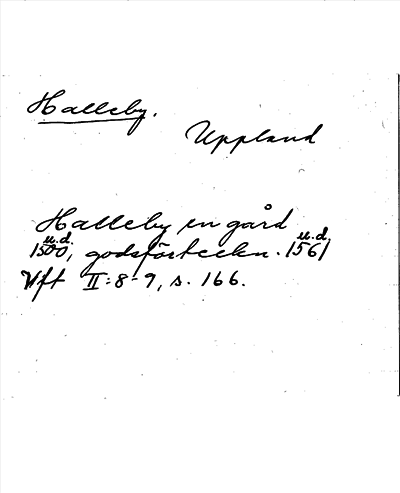 Halleby.
Uppland
Halleby en gård
u.d. u.d.
1500, godsförteckn. 1561
Uft II:8-9, s. 166.